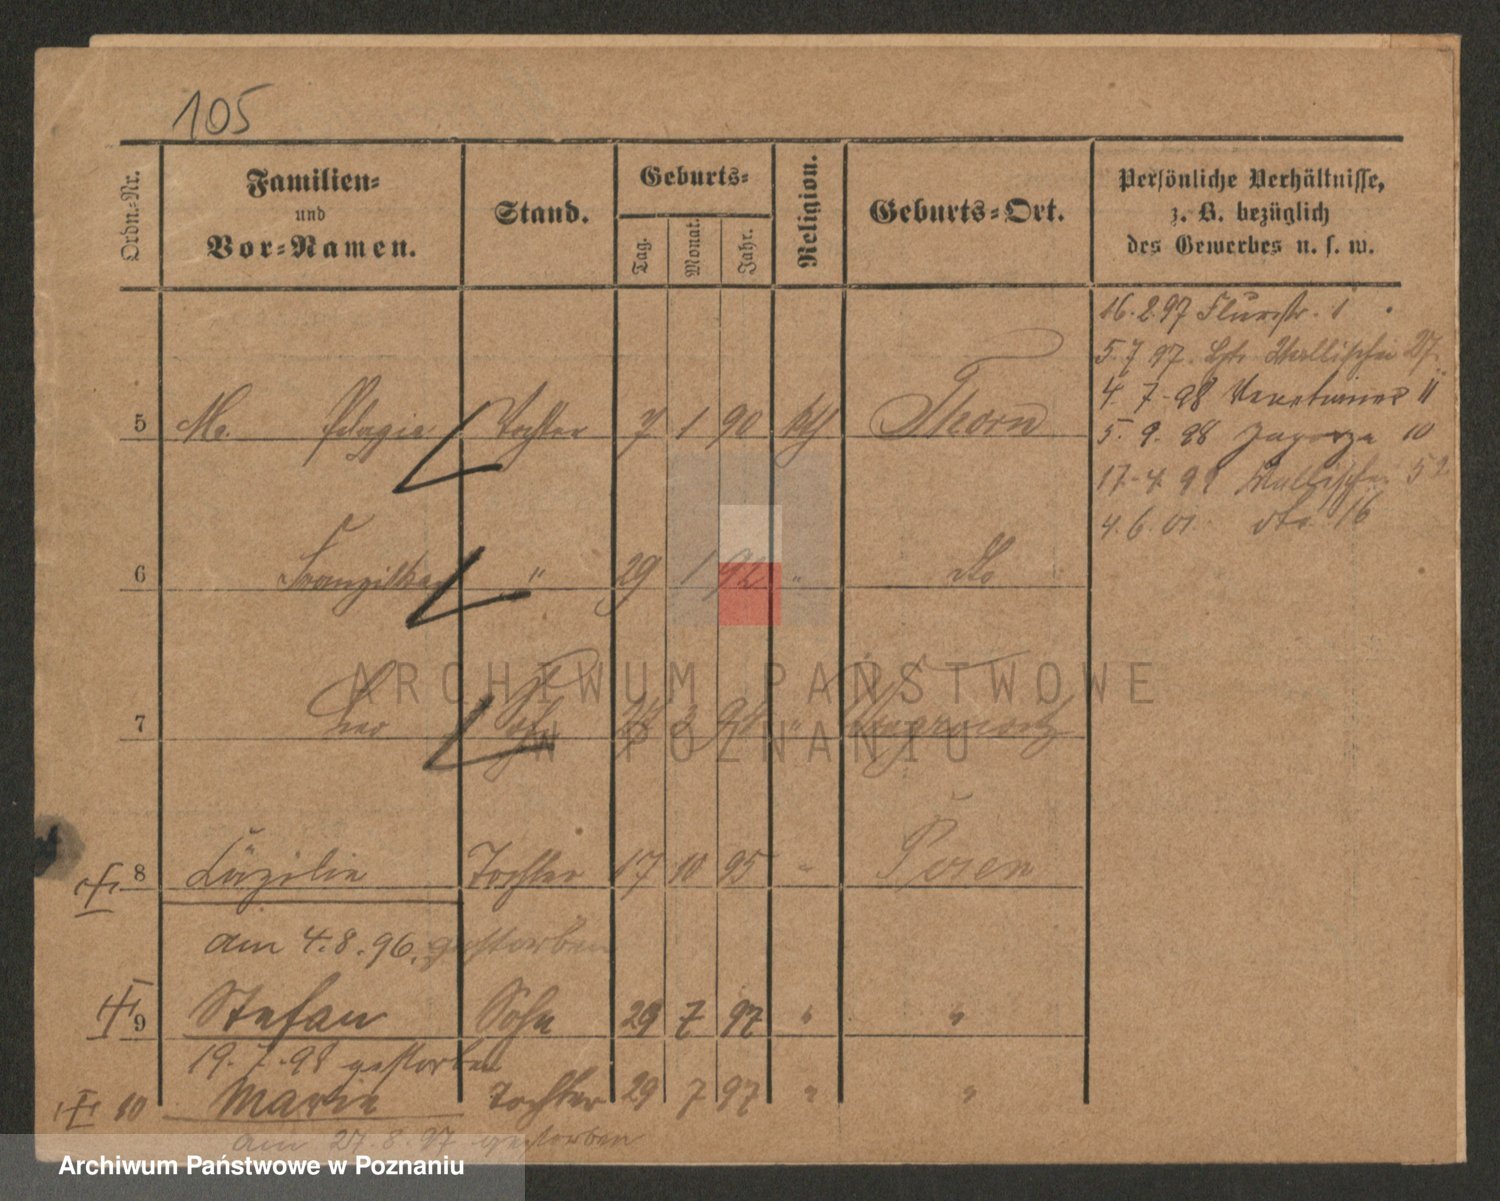 105
Ordn.-Nr.
Familien-
und
Vor-Namen.
Stand.
Geburts-
Tag.
Monat.
Jahr.
Religion.
Geburts-Ort.
Persönliche Verhältnisse,
z. B. bezüglich
des Gewerbes u. s. w.
16.2.97 Flurstr. 1
5.7.97. Wallischei 27.
4.7.98 Venetianer 11
5.9.98 Zagorze 10
17.4.99 Wallischei 52
4.6.01. dto 16
5 Pelagia Tochter 7 1 90 kth Thorn
6 Franziska " 29 1 92 " dto
7 Leo Sohn 3 " Wongrowitz
8 Cäzilie Tochter 17 10 95 " Posen
am 4.8.96. gestorben
9 Stefan Sohn 29 7 97 " "
19.7.98 gestorben
10 Marie Tochter 29 7 97 " "
am 27.8.97 gestorben
ARCHIWUM PAŃSTWOWE
W POZNANIU
Archiwum Państwowe w Poznaniu